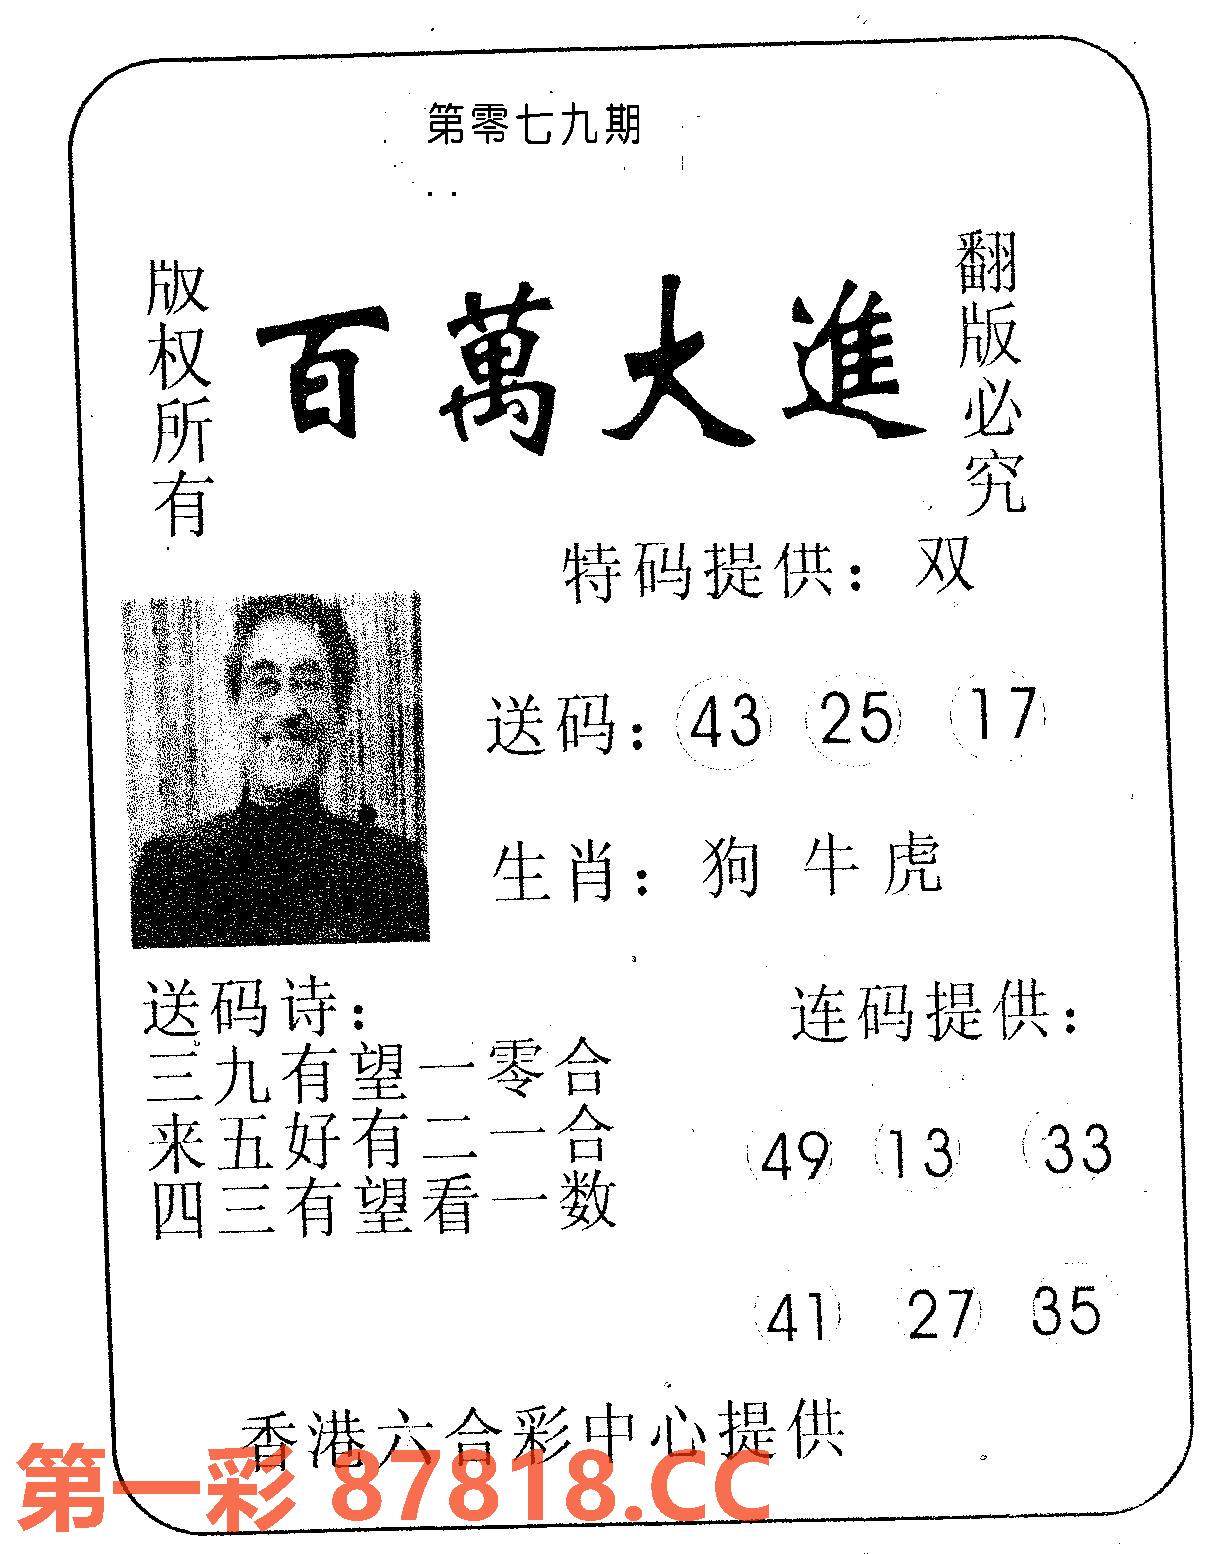 第零七九期
版权所有
百萬大進
翻版必究
特码提供：双
送码：43 25 17
生肖：狗 牛 虎
送码诗：
三九有望一零合
来五好有二一合
四三有望看一数
连码提供：
49 13 33
41 27 35
香港六合彩中心提供
第一彩 87818.CC